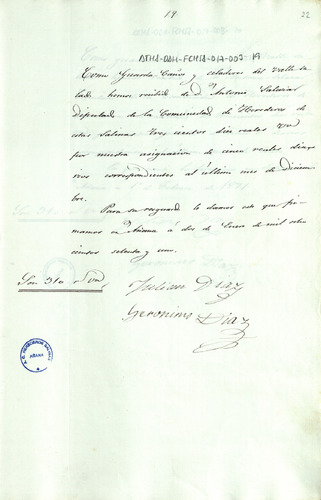 19
22
ATHA-DAH-FCMSA-017-007-19
Como Guarda Caños y celadores del valle sa
lado hemos recibido de Dn Antonio Salazar
diputado de la Comunidad de Herederos de
estas Salinas tres cientos diez reales vn
por nuestra asignacion de cinco reales dia
rios correspondientes al último mes de diciem
bre.
Para su resguardo le damos este que fir
mamos en Añana a dos de Enero de mil ocho
cientos setenta y uno.
Son 310 rs vn
Julian Diaz
Geronimo Diaz
AÑANA